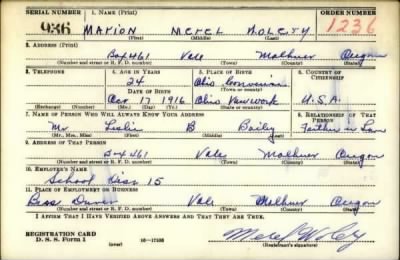 SERIAL NUMBER 1. NAME (Print) ORDER NUMBER
936 MARION MEREL 1236
(First) (Middle) (Last)
2. ADDRESS (Print)
Box 461 Vale Malheur Oregon
(Number and street or R. F. D. number) (Town) (County) (State)
3. TELEPHONE 4. AGE IN YEARS 5. PLACE OF BIRTH 6. COUNTRY OF CITIZENSHIP
24 Ohio
(Town or county)
DATE OF BIRTH
17 1916 Ohio U.S.A.
(Exchange) (Number) (Mo.) (Day) (Yr.) (State or country)
7. NAME OF PERSON WHO WILL ALWAYS KNOW YOUR ADDRESS 8. RELATIONSHIP OF THAT PERSON
Mr Leslie B Bailey Father in Law
(Mr., Mrs., Miss) (First) (Middle) (Last)
9. ADDRESS OF THAT PERSON
Box 461 Vale Malheur Oregon
(Number and street or R. F. D. number) (Town) (County) (State)
10. EMPLOYER'S NAME
School Dist 15
11. PLACE OF EMPLOYMENT OR BUSINESS
Bus Driver Vale Malheur Oregon
(Number and street or R. F. D. number) (Town) (County) (State)
I AFFIRM THAT I HAVE VERIFIED ABOVE ANSWERS AND THAT THEY ARE TRUE.
REGISTRATION CARD
D. S. S. Form 1 (over) 16—17105 (Registrant's signature)